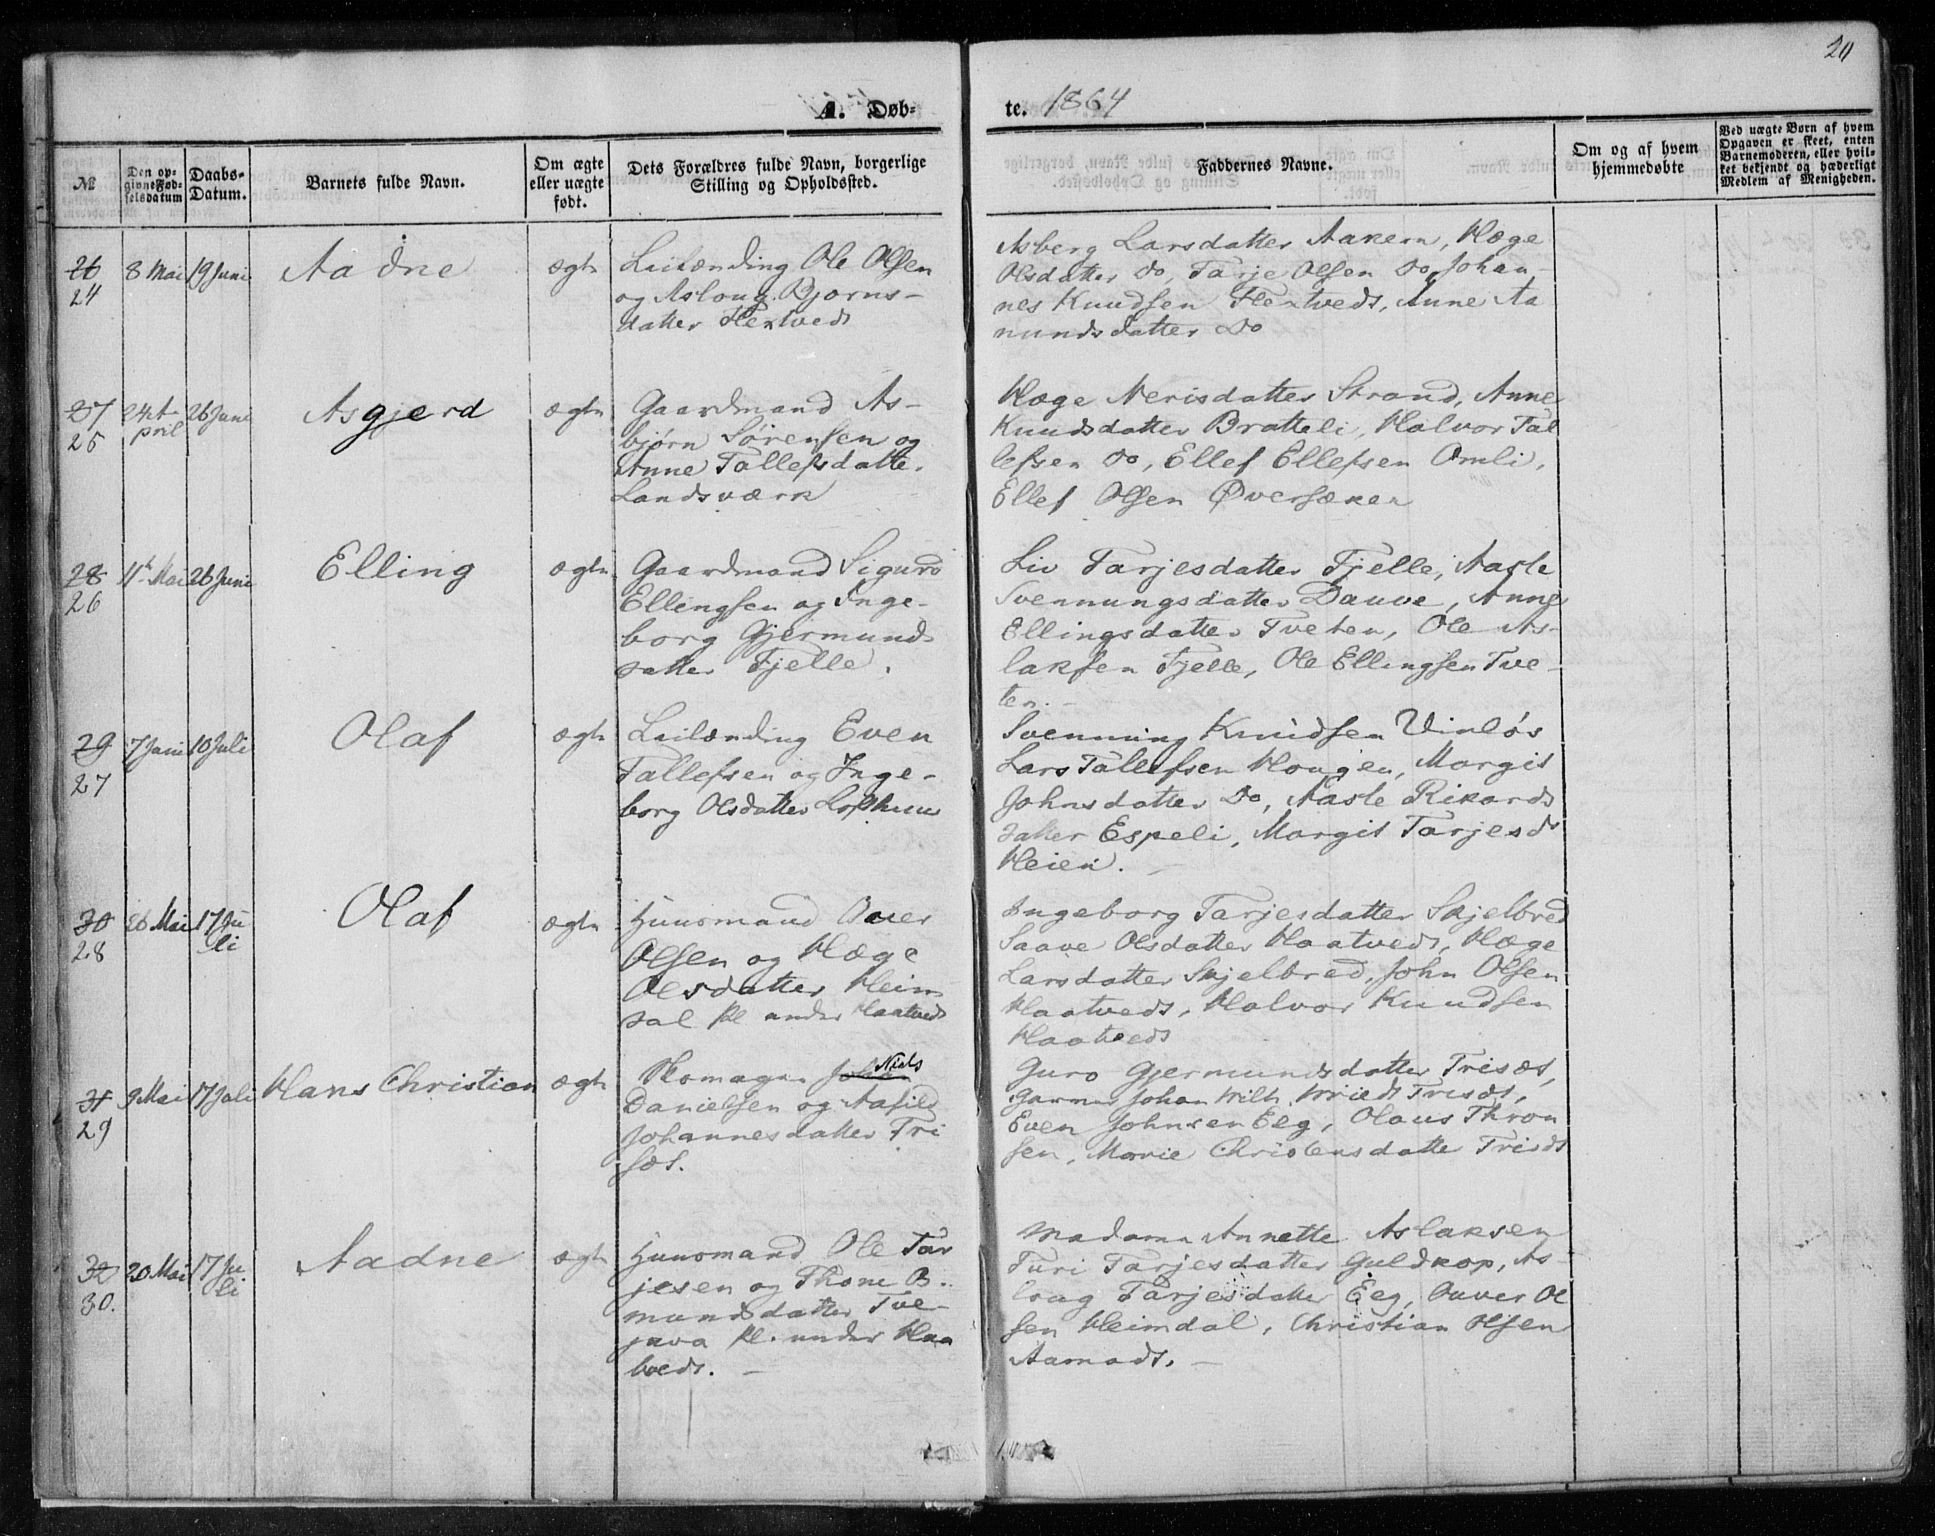 20
A. Døb-
te. 1864
№
Den op-
givne Fød-
selsdatum
Daabs-
Datum.
Barnets fulde Navn.
Om ægte
eller uægte
født.
Dets Forældres fulde Navn, borgerlige
Stilling og Opholdssted.
Faddernes Navne.
Om og af hvem
hjemmedøbte
Ved uægte Børn af hvem
Opgaven er skeet, enten
Barnemoderen, eller hvil-
ket bekjendt og hæderligt
Medlem af Menigheden.
26
24
8 Mai
19 Juni
Aadne
ægte
Leilænding Ole Olsen
og Asloug Bjørns-
datter Flextveds
Asberg Larsdatter Aakern, Hæge
Olsdatter Do, Tarje Olsen Do, Johan-
nes Knudsen Flextveds, Anne Aa
nundsdatter Do
27
25
24 A-
pril
26 Juni
Asgjerd
ægte
Gaardmand As-
bjørn Sørensen og
Anne Tallefsdatte.
Landsværk
Hæge Nerisdatter Strand, Anne
Knudsdatter Bratteli, Halvor Tal
lefsen Do, Ellef Ellefsen Omli,
Ellef Olsen Øversaker
28
26
11t Mai
26 Juni
Elling
ægte
Gaardmand Sigurd
Ellingsen og Inge-
borg Gjermunds
datter Fjelle.
Liv Tarjesdatter Fjelle, Aasle
Svennungsdatter Dauve, Anne
Ellingsdatter Tveten, Ole As-
laksen Fjelle, Ole Ellingsen Tve-
ten.-
29
27
7 Juni
10 Juli
Olaf
ægte
Leilænding Even
Tallefsen og Inge-
borg Olsdatter Lofthuus
Svenning Knudsen Vinløs
Lars Tallefsen Hougen, Margit
Johnsdatter Do, Aasle Rikards
datter Espeli, Margit Tarjesd
Heien.
30
28
26 Mai
17 Ju
li
Olaf
ægte
Huusmand Ouer
Olsen og Hæge
Olsdatter Heim
dal Pl under Haatveds
Ingeborg Tarjesdatter Skjelbred
Saave Olsdatter Haatveds, Hæge
Larsdatter Skjelbred, John Olsen
Haatveds, Halvor Knudsen
Haatveds
31
29
9 Mai
17 Juli
Hans Christian
ægte
Skomager Niels
Danielsen og Aasild
Johannesdatter Tri
sæt.
Guro Gjermundsdatter Trisæt,
Garmer Johan Wilh. Wriedt Trisæt,
Even Johnsen Eeg, Olaus Thron
sen, Marie Christensdatte Trisæt
32
30.
20 Mai
17 Ju
li
Aadne
ægte
Huusmand Ole Tar
jesen og Thone O.
mundsdatter Tve-
java Pl. under Haa
tveds. -
Madame Annette Aslaksen
Turi Tarjesdatter Guldkop, As-
loug Tarjesdatter Eeg, Ouver Ol
sen Heimdal, Christian Olsen
Aamods. -